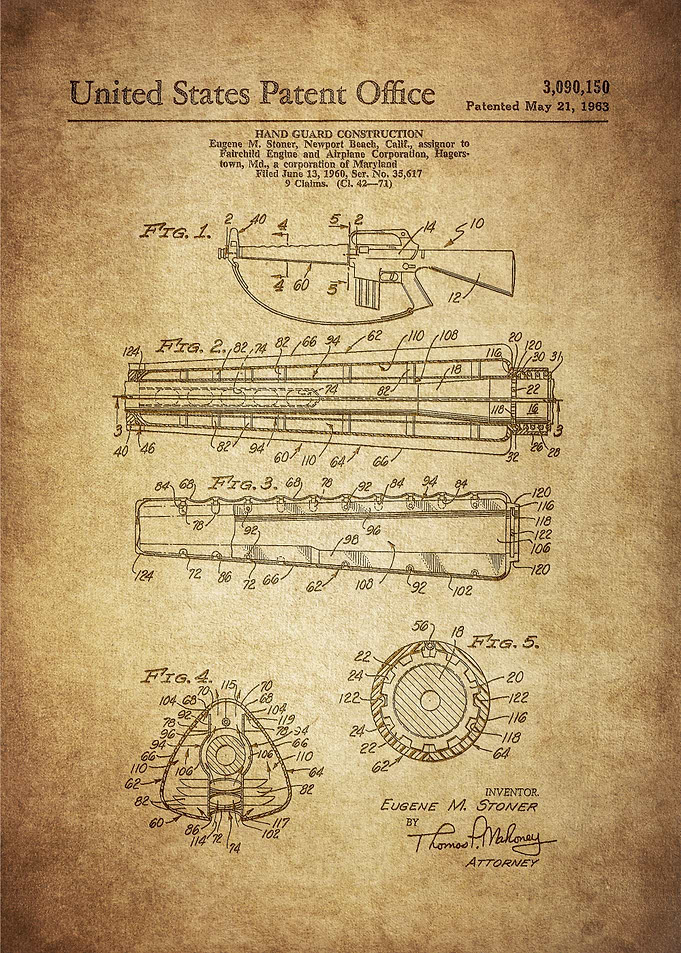 United States Patent Office
3,090,150
Patented May 21, 1963
HAND GUARD CONSTRUCTION
Eugene M. Stoner, Newport Beach, Calif., assignor to
Fairchild Engine and Airplane Corporation, Hagers-
town, Md., a corporation of Maryland
Filed June 13, 1960, Ser. No. 35,617
9 Claims. (Cl. 42—71)
FIG. 1.
2 40 4 5 2 14 10
4 60 5 12
FIG. 2.
124 82 74 82 66 94 62 110 108 116 20 120 30 31
82 74 18 22
3 118 16 3
40 46 82 94 60 110 64 66 32 26 28
FIG. 3.
84 68 68 78 92 84 94 84 120
116
78 92 96 118
98 122
106
124 72 86 72 66 62 108 92 102 120
FIG. 4.
70 115 70
104 68 68
92 104
78 119
96 78 94
94 66
66 106 110
110 106 64
62
82 82
60 86 117
114 72 102
74
FIG. 5.
56 18
22
24 20
122 122
116
24 118
22 64
62
INVENTOR.
EUGENE M. STONER
BY
Thomas P. Mahoney
ATTORNEY